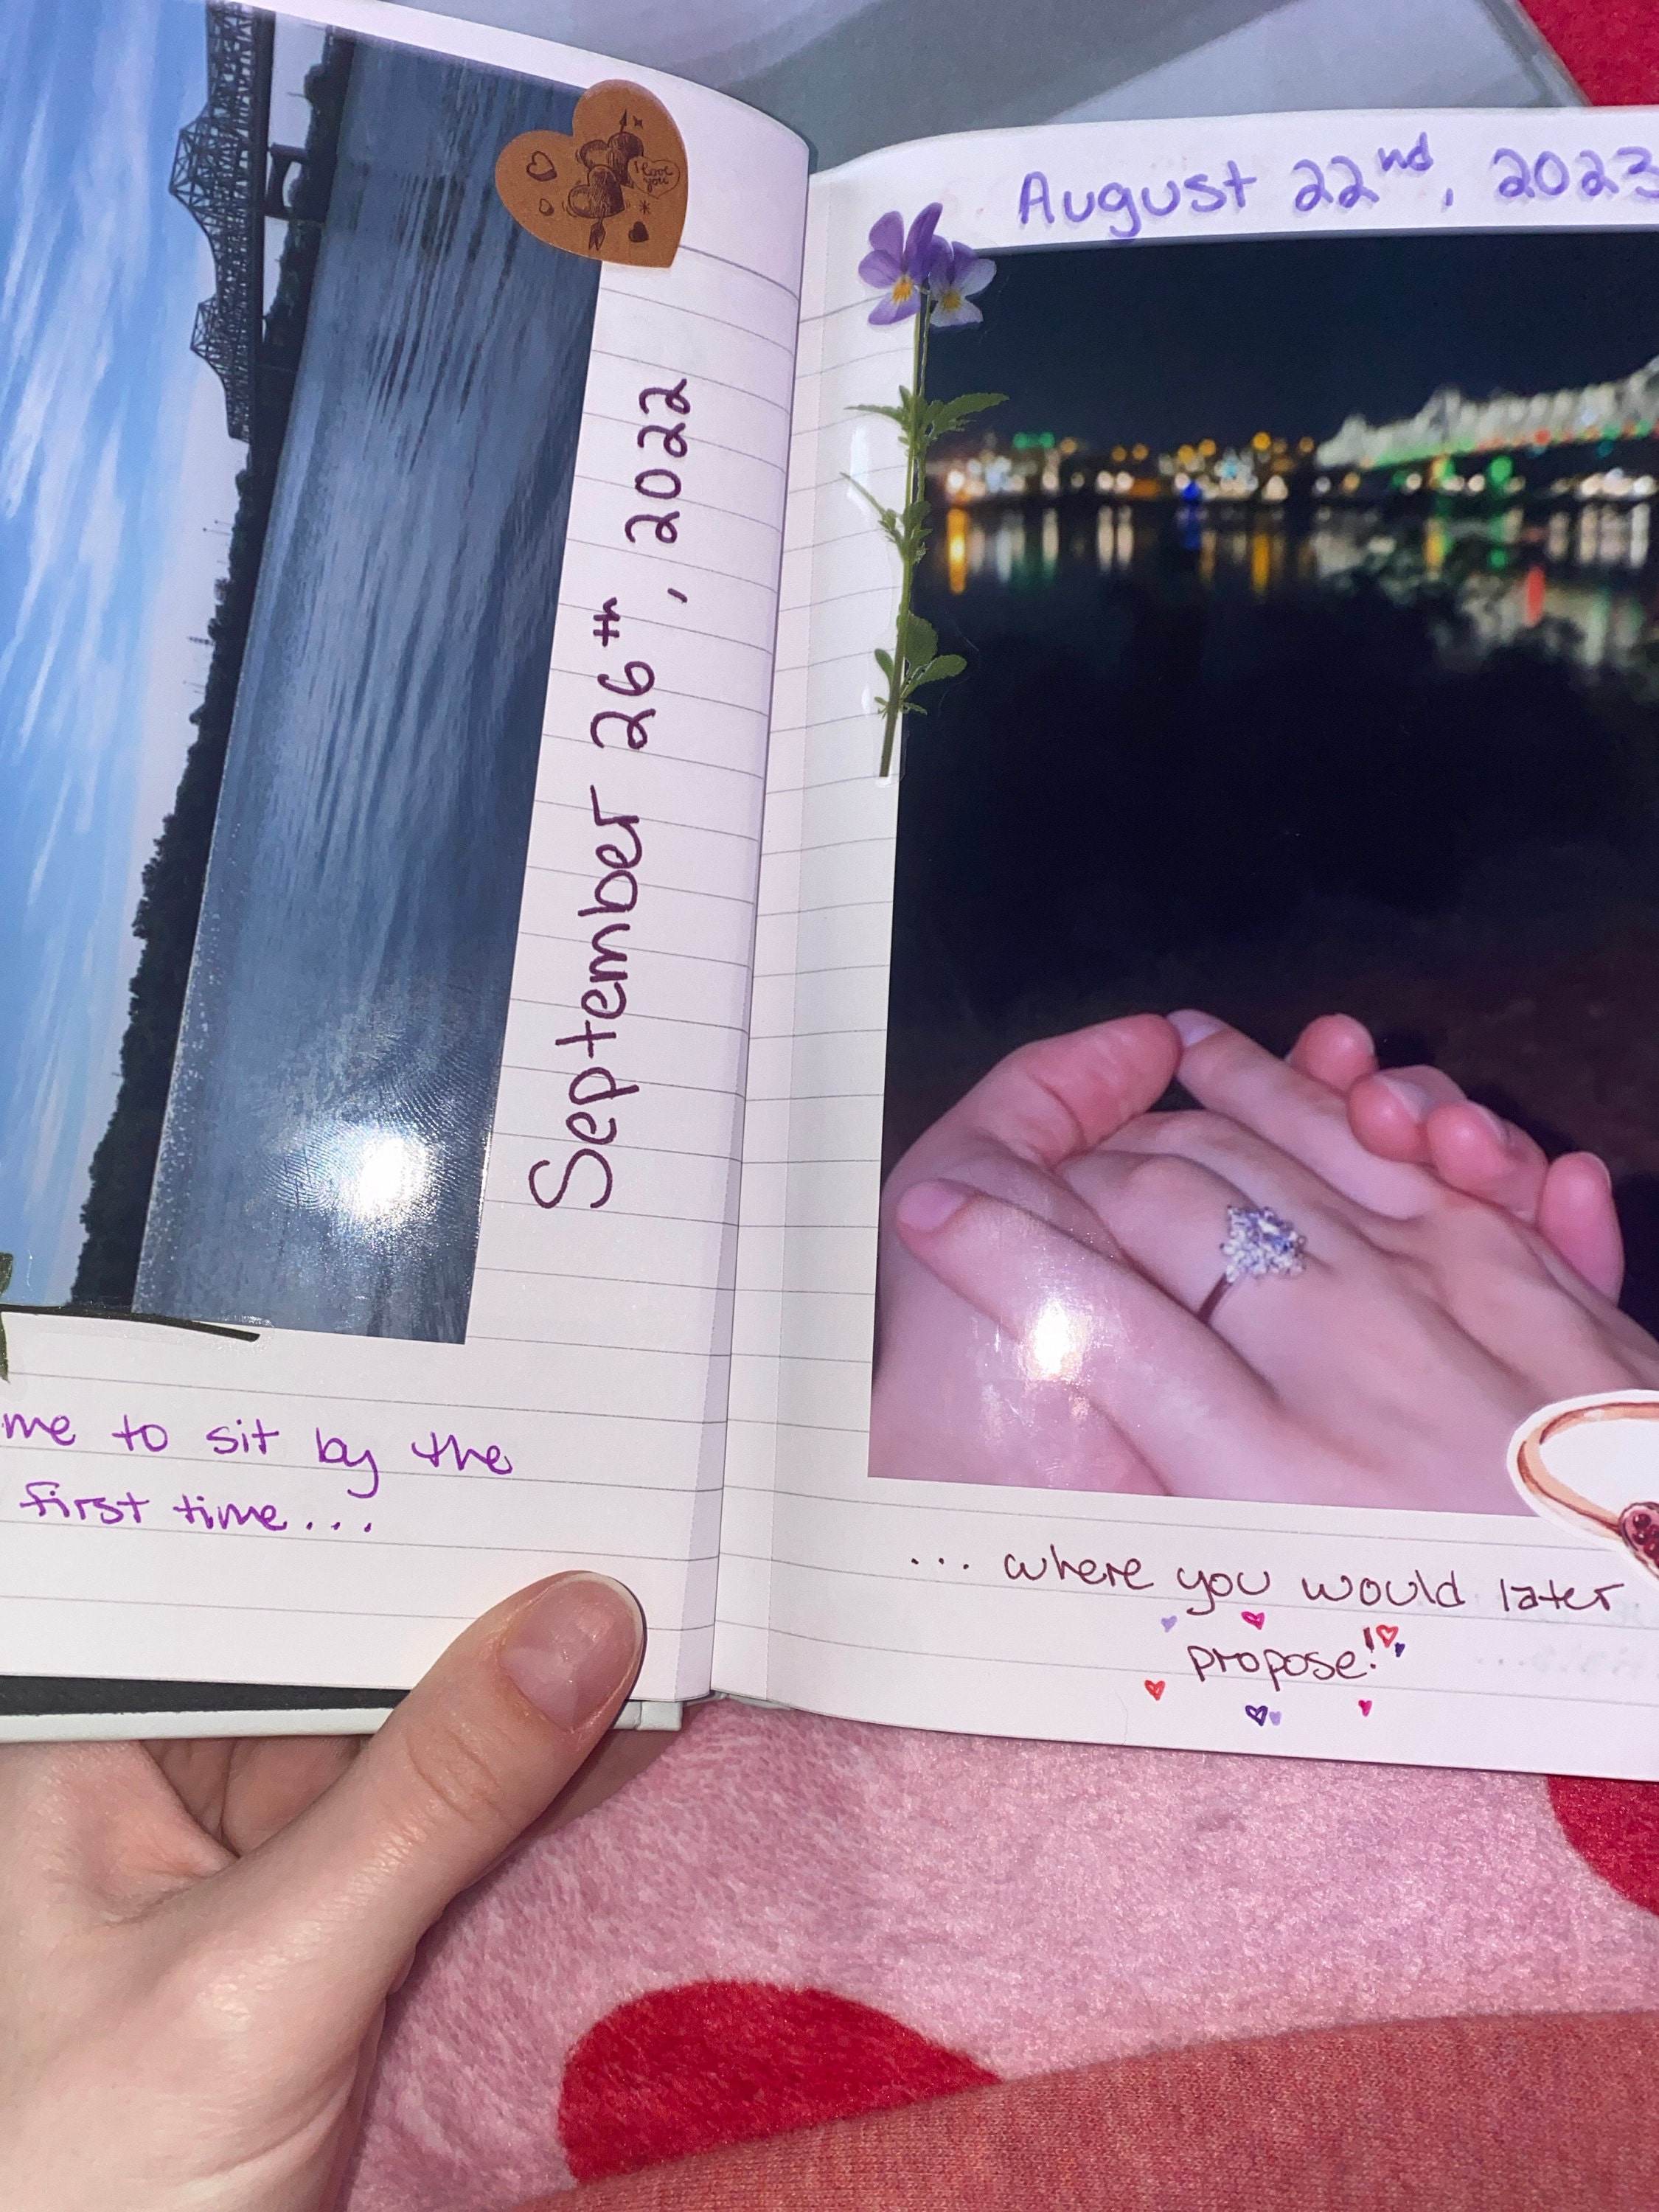 I love
you
September 26th, 2022
me to sit by the
first time...
August 22nd, 2023
... where you would later
propose!